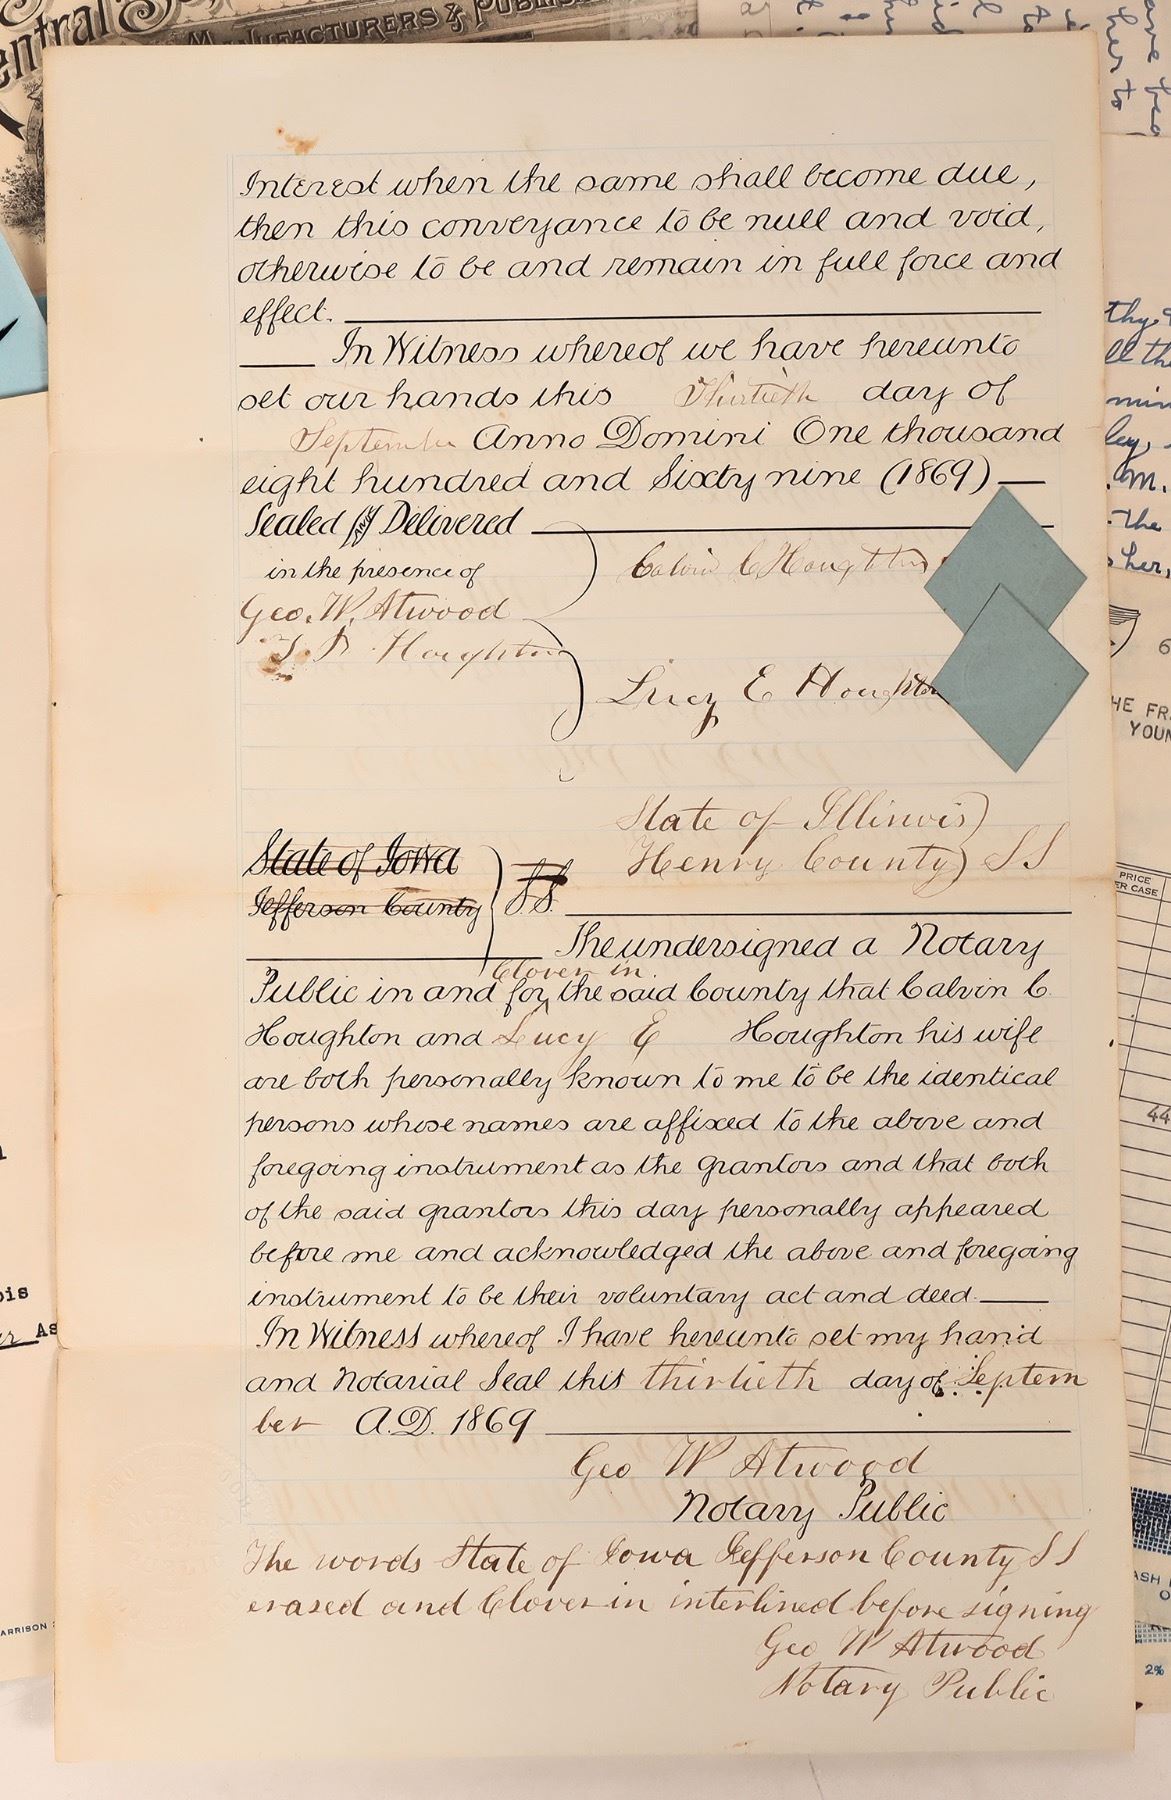 Central
MANUFACTURERS & PUBLIS
Interest when the same shall become due,
then this conveyance to be null and void,
otherwise to be and remain in full force and
effect.
In Witness whereof we have hereunto
set our hands this Thirtieth day of
September Anno Domini One thousand
eight hundred and Sixty nine (1869)
Sealed and Delivered
in the presence of
Geo. W. Atwood
Houghton
Calvin C Houghton
Lucy E Houghton
State of Illinois)
Henry County) SS
State of Iowa
Jefferson County
S.S.
The undersigned a Notary
Clover in
Public in and for the said County that Calvin C.
Houghton and Lucy E Houghton his wife
are both personally known to me to be the identical
persons whose names are affixed to the above and
foregoing instrument as the grantors and that both
of the said grantors this day personally appeared
before me and acknowledged the above and foregoing
instrument to be their voluntary act and deed.
In Witness whereof I have hereunto set my hand
and Notarial Seal this thirtieth day of Septem
ber A.D. 1869
Geo W Atwood
Notary Public
The words State of Iowa Jefferson County SS
erased and Clover in interlined before signing
Geo W Atwood
Notary Public
her to
thy
ll the
min
ley,
M.
the
her,
6
HE FR
YOUN
PRICE
ER CASE
44
ASH
2%
ois
As
ARRISON